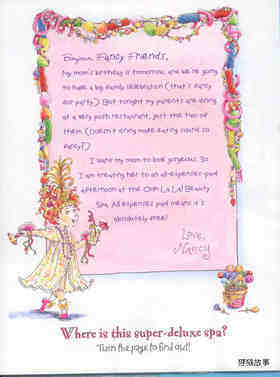 Bonjour Fancy Friends,
My mom's birthday is tomorrow, and we're going
to have a big family celebration (that's fancy
for party.) But tonight my parents are dining
at a very posh restaurant, just the two of
them. (Doesn't dining make eating sound so
fancy?)
I want my mom to look gorgeous. So
I am treating her to an all-expenses-paid
afternoon at the Ooh La La! Beauty
Spa. All expenses paid means it's
absolutely free!
Love,
Nancy
Where is this super-deluxe spa?
Turn the page to find out!
狸狸故事